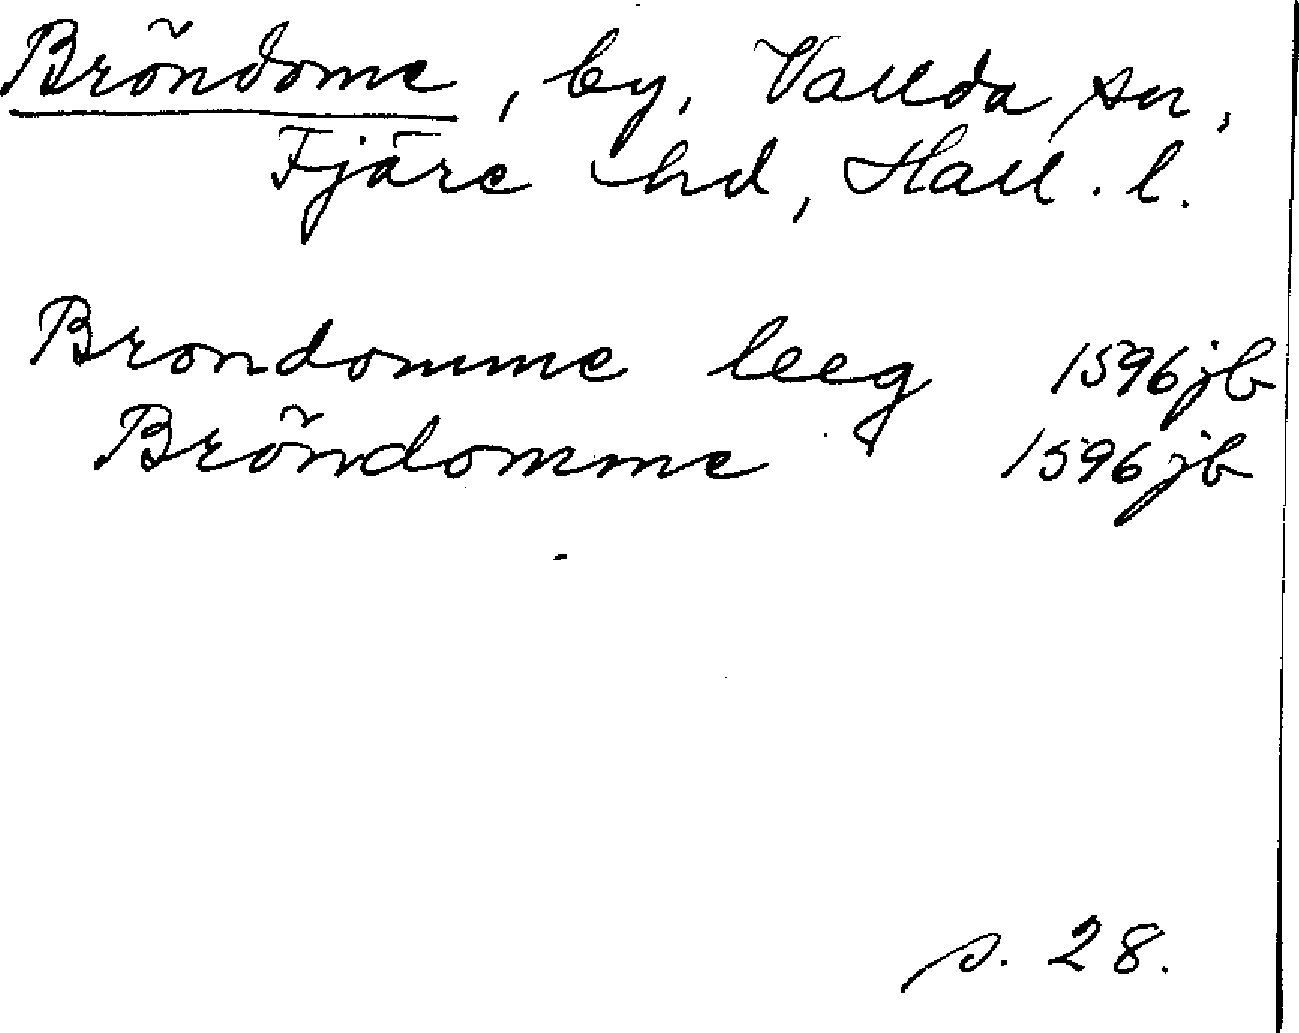 Bröndome, by, Vallda sn,
Fjäre hd, Hall. l.
Brondomme leeg 1596 jb
Bröndomme 1596 jb
s. 28.